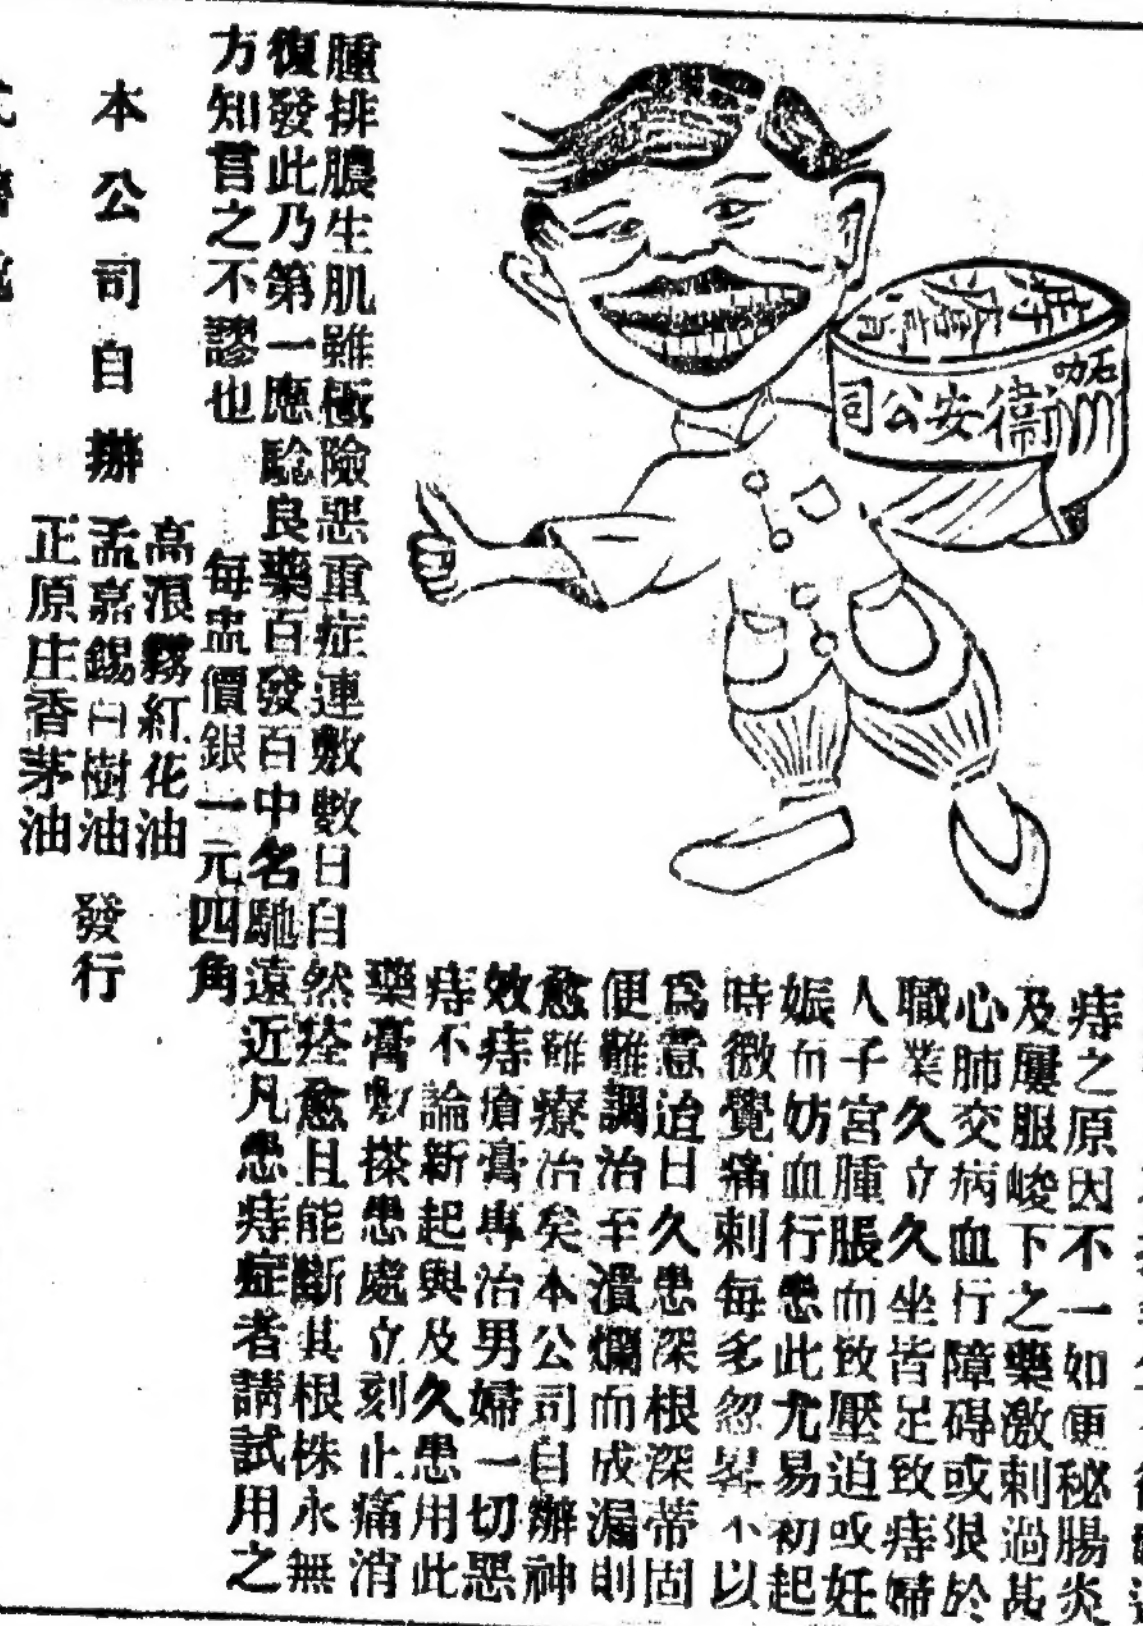 痔瘡膏
石叻衛安公司
痔之原因不一如便秘腸炎
及屢服峻下之藥激刺過甚
心肺交病血行障碍或限於
職業久立久坐皆足致痔婦
人子宮腫脹而致壓迫或妊
娠而妨血行患此尤易初起
時微覺痛刺每多忽畧不以
爲意迨日久患深根深蒂固
便難調治至潰爛而成漏則
愈難療治矣本公司自辦神
效痔瘡膏專治男婦一切惡
痔不論新起與及久患用此
藥膏敷搽患處立刻止痛消
腫排膿生肌雖極險惡重症連敷數日自然痊愈且能斷其根株永無
復發此乃第一應騐良藥百發百中名馳遠近凡患痔症者請試用之
方知言之不謬也
每盅價銀一元四角
本公司自辦
高浪霧紅花油
孟嘉錫白樹油
正原庄香茅油
發行